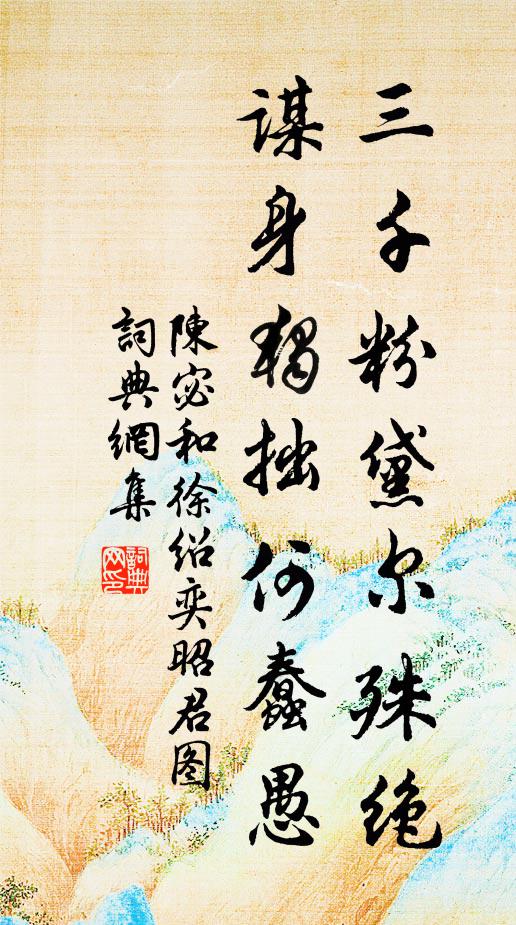 三千粉黛尔殊绝
谋身独拙何蠢愚
陳宓和徐绍奕昭君图
詞典網集
詞典网印